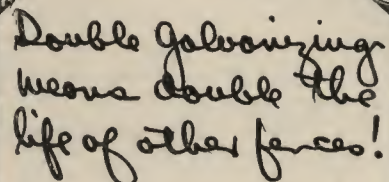 Double Galvanizing
means double the
life of other fences!